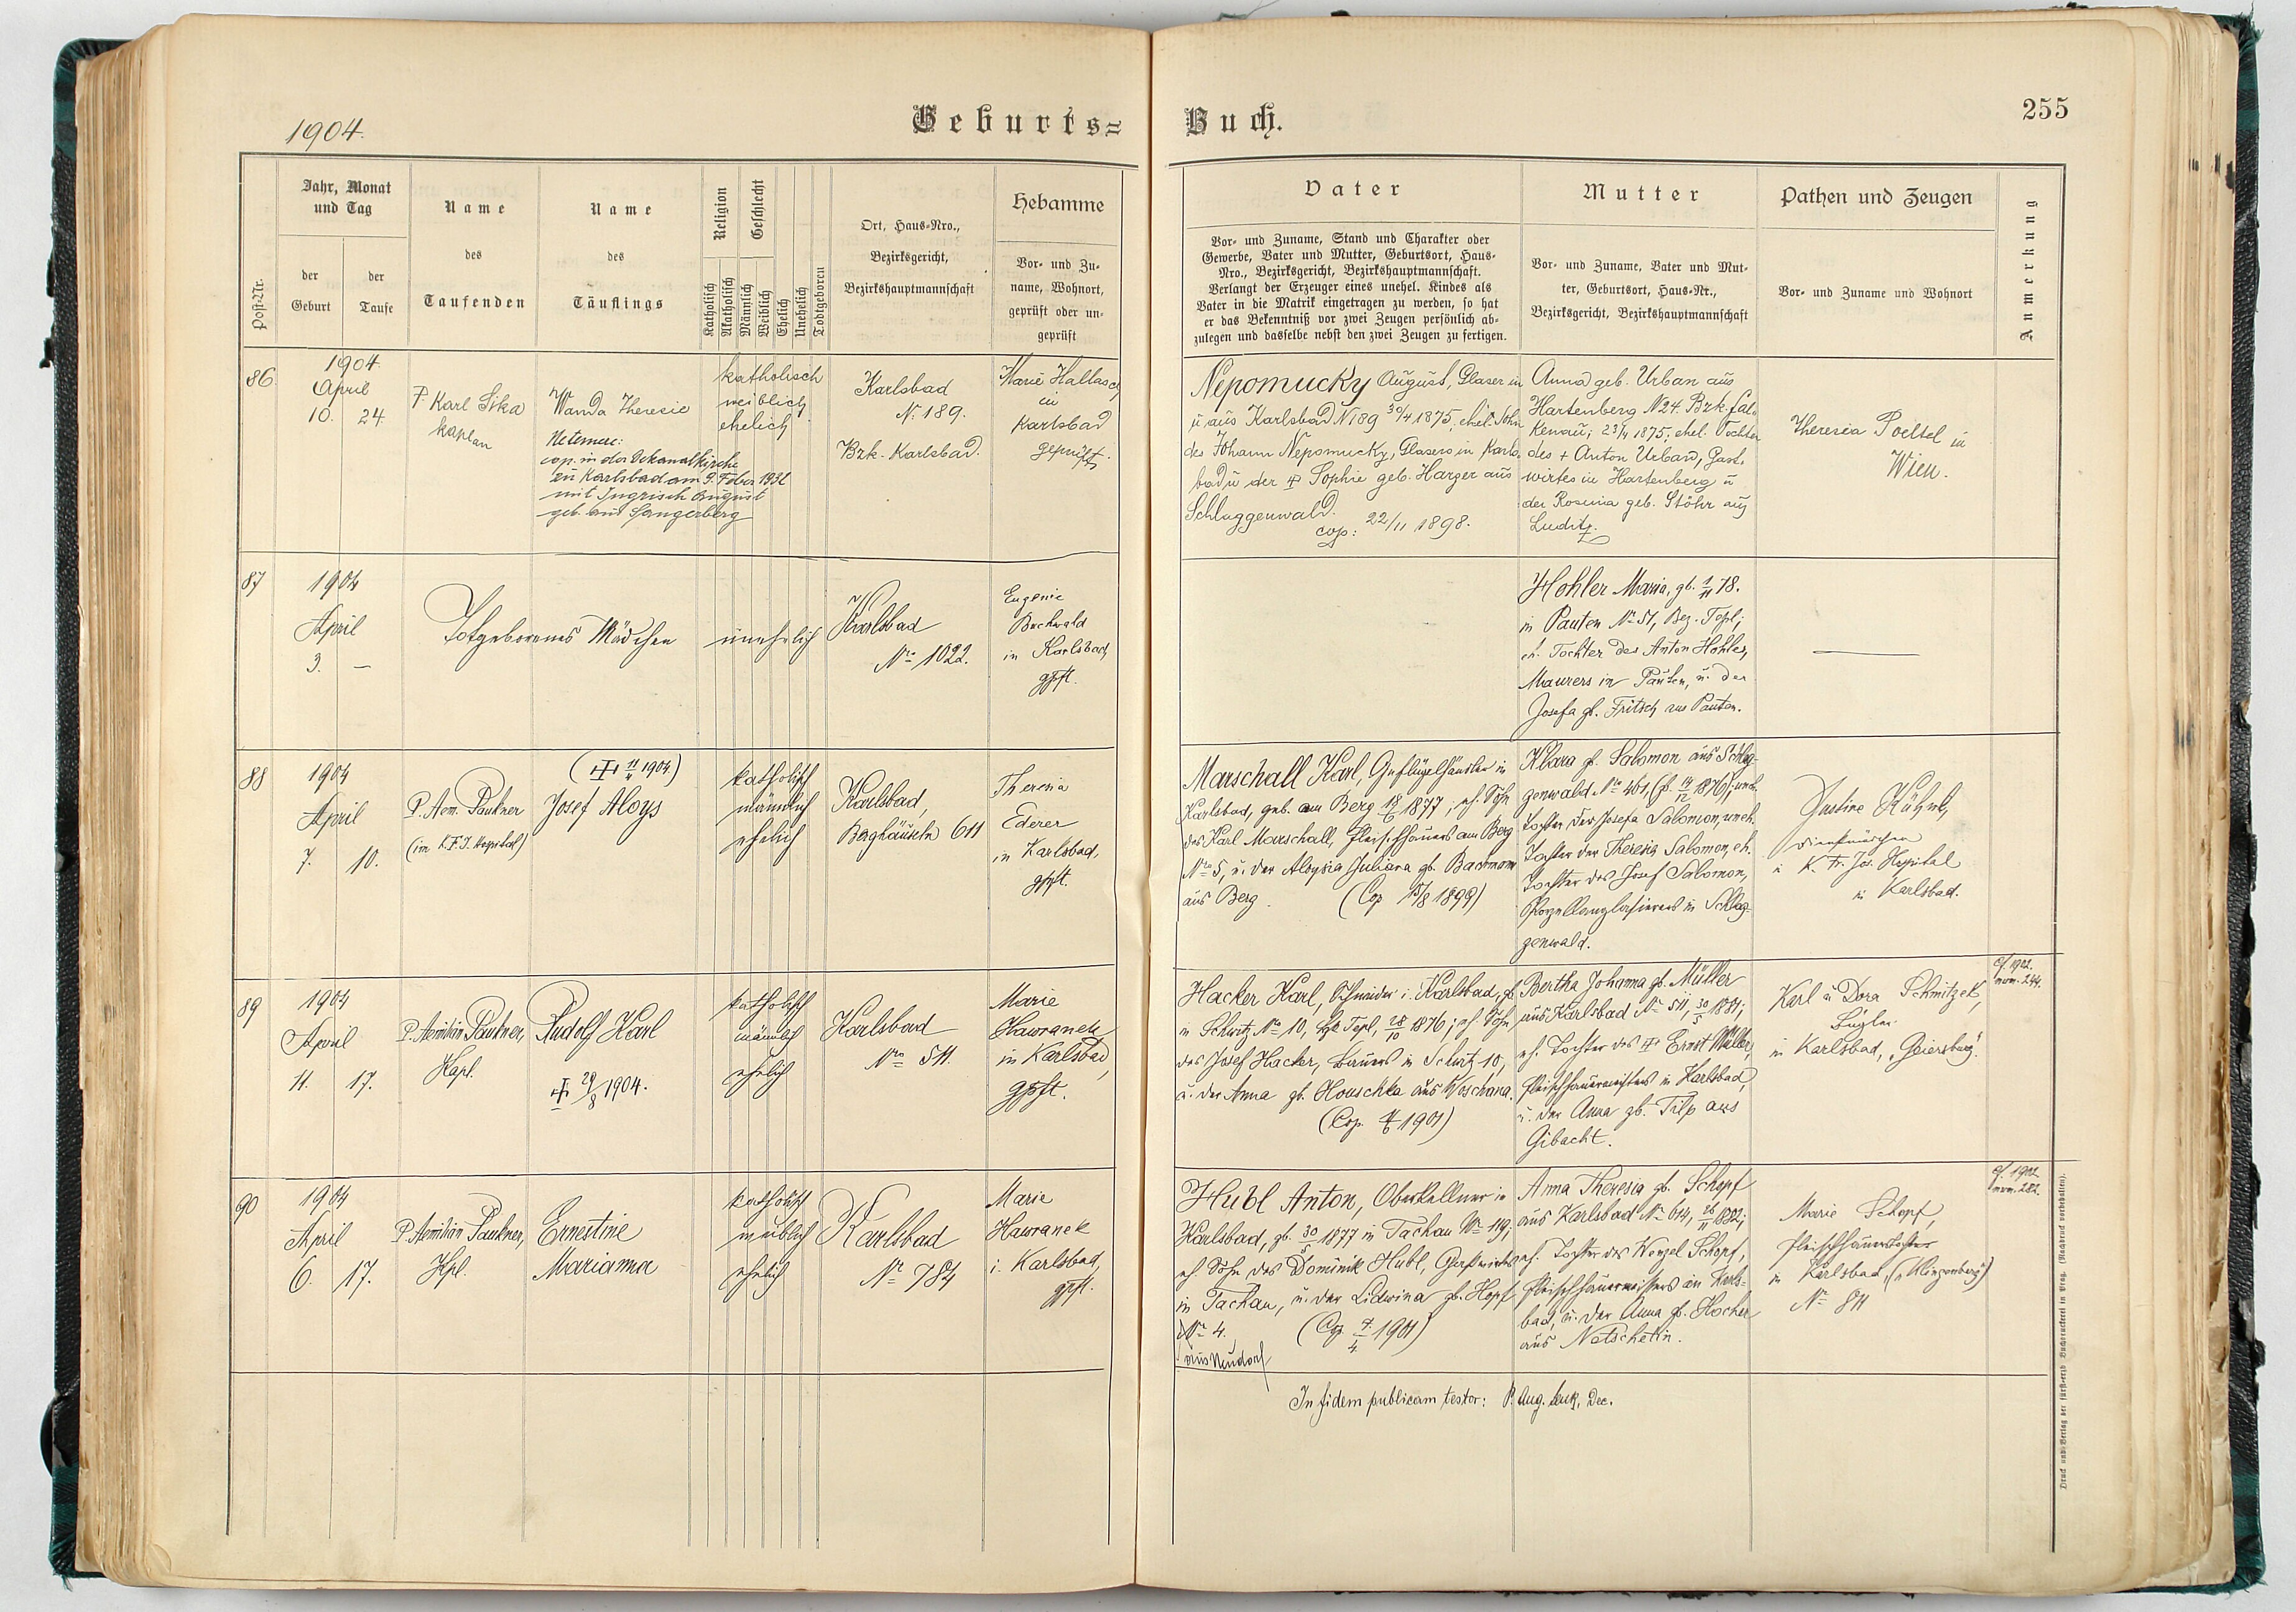 1904.
Geburts=
Buch.
255
Post-Nr.
Jahr, Monat
und Tag
der
Geburt
der
Taufe
Name
des
Taufenden
Name
des
Täuflings
Religion
Katholisch
Akatholisch
Geschlecht
Männlich
Weiblich
Ehelich
Unehelich
Todtgeboren
Ort, Haus-Nro.,
Bezirksgericht,
Bezirkshauptmannschaft
Hebamme
Vor- und Zu-
name, Wohnort,
geprüft oder un-
geprüft
Vater
Vor- und Zuname, Stand und Charakter oder
Gewerbe, Vater und Mutter, Geburtsort, Haus-
Nro., Bezirksgericht, Bezirkshauptmannschaft.
Verlangt der Erzeuger eines unehel. Kindes als
Vater in die Matrik eingetragen zu werden, so hat
er das Bekenntniß vor zwei Zeugen persönlich ab-
zulegen und dasselbe nebst den zwei Zeugen zu fertigen.
Mutter
Vor- und Zuname, Vater und Mut-
ter, Geburtsort, Haus-Nr.,
Bezirksgericht, Bezirkshauptmannschaft
Pathen und Zeugen
Vor- und Zuname und Wohnort
Anmerkung
86
1904.
April
10. 24.
P. Karl Sika
kaplan
Wanda Theresie
cop. in der Dekanalkirche
zu Karlsbad am 9. Feber 1931
mit Ingrisch August
geb. aus Sangerberg
katholisch
weiblich
ehelich
Karlsbad
N. 189.
Bzk. Karlsbad.
Marie Hallasch
in
Karlsbad
geprüft.
Nepomucky August, Glaser in
u. aus Karlsbad N 189 30/4 1875, ehel. Sohn
des Johann Nepomucky, Glasers in Karls-
bad u der Sophie geb. Harger aus
Schlaggenwald.
cop: 22/11 1898.
Anna geb. Urban aus
Hartenberg N 24. Bzk. Fal-
kenau; 23/4 1875; ehel. Tochter
des + Anton Urban, Gast-
wirtes in Hartenberg u
der Rosina geb. Stöhr aus
Luditz.
Theresia Poeltel in
Wien.
87
1904
April
3. —
Totgeborenes Mädchen
unehelich
Karlsbad
Nro 1022.
Eugenie
Buchwald
in Karlsbad,
gpft.
Hohler Maria, gb. 1/11 78.
in Pauten No 51, Bez. Tepl;
eh. Tochter des Anton Hohler,
Maurers in Pauten, u. der
Josefa gb. Fritsch aus Pauten.
88
1904
April
7. 10.
P. Aem. Paukner
(im K.F.J. Hospital)
(11/4 1904)
Josef Aloys
katholisch
männlich
ehelich
Karlsbad,
Berghäuseln 611
Theresia
Ederer
in Karlsbad,
gpft.
Marschall Karl, Geflügelhändler in
Karlsbad, geb. am Berg 18/6 1877; eh. Sohn
des Karl Marschall, Fleischhauers am Berg
Nro 5, u. der Aloysia Juliana gb. Bachmann
aus Berg. (Cop 15/8 1899)
Klara gb. Salomon aus Schlag-
genwald No 461, (gb. 14/12 1876); uneh.
Tochter der Josefa Salomon, uneh.
Tochter der Theresia Salomon, eh.
Tochter des Josef Salomon,
Porzellanglasierers in Schlag-
genwald.
Justine
Dienstmädchen
i K. Fr. Jos. Hospital
in Karlsbad.
89
1904
April
11. 17.
P. Aemilian Paukner,
Kapl.
Rudolf Karl
29/8 1904.
katholisch
männlich
ehelich
Karlsbad
Nro 511.
Marie
Hawranek
in Karlsbad,
gpft.
Hacker Karl, Schneider i. Karlsbad, gb.
in Schwitz No 10, Tepl, 28/10 1876; eh. Sohn
des Josef Hacker, Bauers in 10,
u. der Anna gb. Honschka aus Woschana.
(Cop. 1901)
Bertha Johanna gb. Müller
aus Karlsbad No 511, 30/5 1881;
eh. Tochter des Ernst Müller,
Fleischhauermeisters in Karlsbad,
u. der Anna gb. Tilp aus
Gibacht.
Karl u Dora Schmitzek,
in Karlsbad, „Geiersburg".
cf. 1902.
num. 244.
90
1904
April
6. 17.
P. Aemilian Paukner,
Kpl.
Ernestine
Marianna
katholisch
weiblich
ehelich
Karlsbad
Nr 784
Marie
Hawranek
i. Karlsbad,
gpft.
Hubl Anton, Oberkellner in
Karlsbad, gb. 30/5 1877 in Tachau No 119;
eh. Sohn des Dominik Hubl, Gastwirtes
in Tachau, u. der Lidwina gb. Hopf
No 4. (Cop. 1901)
aus Neudorf
Anna Theresia gb. Schopf
aus Karlsbad No 614, 26/11 1882;
eh. Tochter des Wenzel Schopf,
Fleischhauermeisters in Karls-
bad, u. der Anna gb. Kocher
aus Netschetin.
Marie Schopf,
Fleischhauerstochter
in Karlsbad, („Klingenberg")
No 811
cf. 1902
num. 282.
In fidem publicam testor: P. Aug. , Dec.
Druck und Verlag der fürst-erzb. Buchdruckerei in Prag. (Nachdruck vorbehalten).